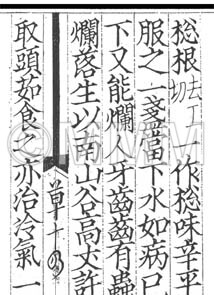 棇根一作棇味辛平
服之一盞當下水如病已
下又能爛人牙齒齒有蟲
爛落生以南山谷高丈許
草十四
取頭茹食之亦治冷氣一